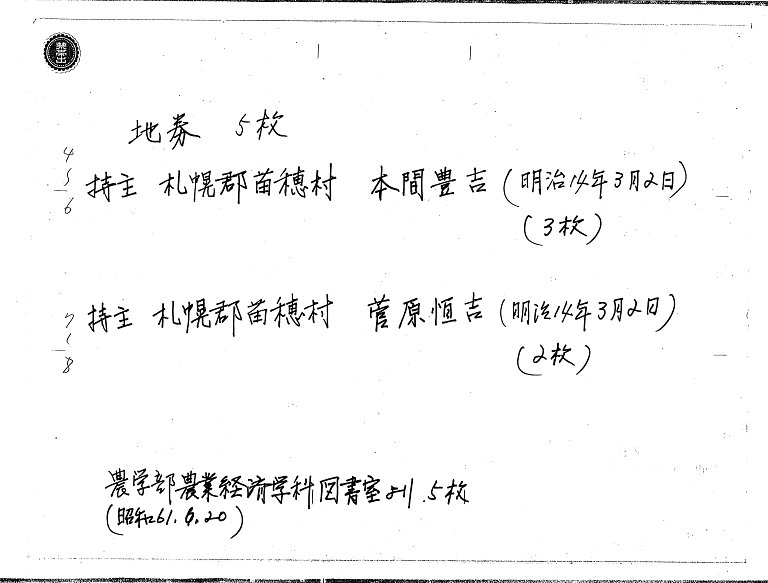 地券 5枚
4
5
6
持主 札幌郡苗穂村 本間豊吉 (明治14年3月2日)
(3枚)
7
8
持主 札幌郡苗穂村 菅原恒吉 (明治14年3月2日)
(2枚)
農学部農業経済学科図書室より.5枚
(昭和61.6.20)